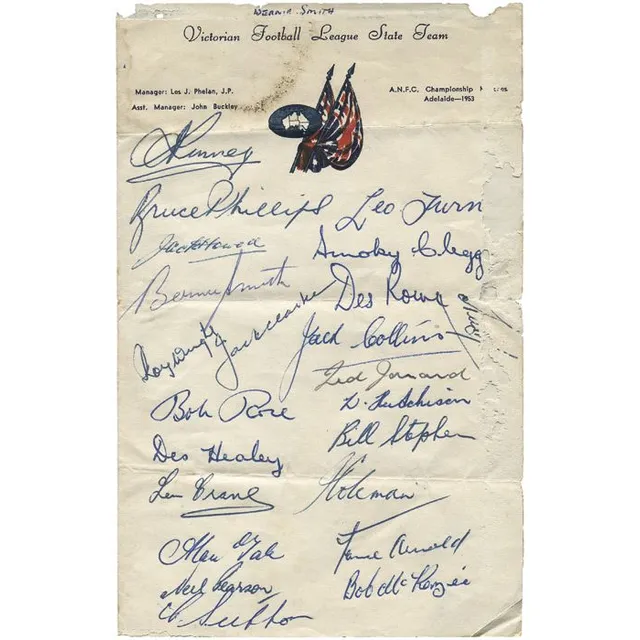 Bernie Smith
Victorian Football League State Team
Manager: Les J. Phelan, J.P.
A.N.F.C. Championship
Asst. Manager: John Buckley
Adelaide—1953
Bruce Phillips
Leo Turn
Jack Howell
Smoky Clegg
Bernie Smith
Des Rowe
Roy Wright
Jack Clarke
Jack Collins
Bob Rose
W. Hutchison
Des Healey
Bill Stephen
Len Crane
Alan Gale
Arnold
Neil Pearson
Bob McKenzie
Sutton